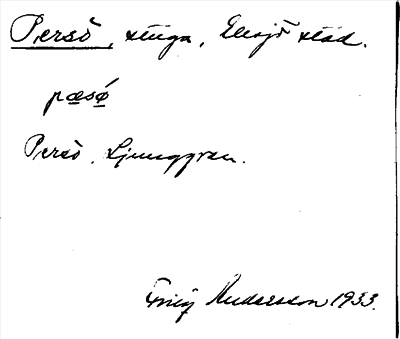 Persö, stuga, Eksjö stad.
pæsǿ
Persö, Ljunggren.
Andersson 1933.